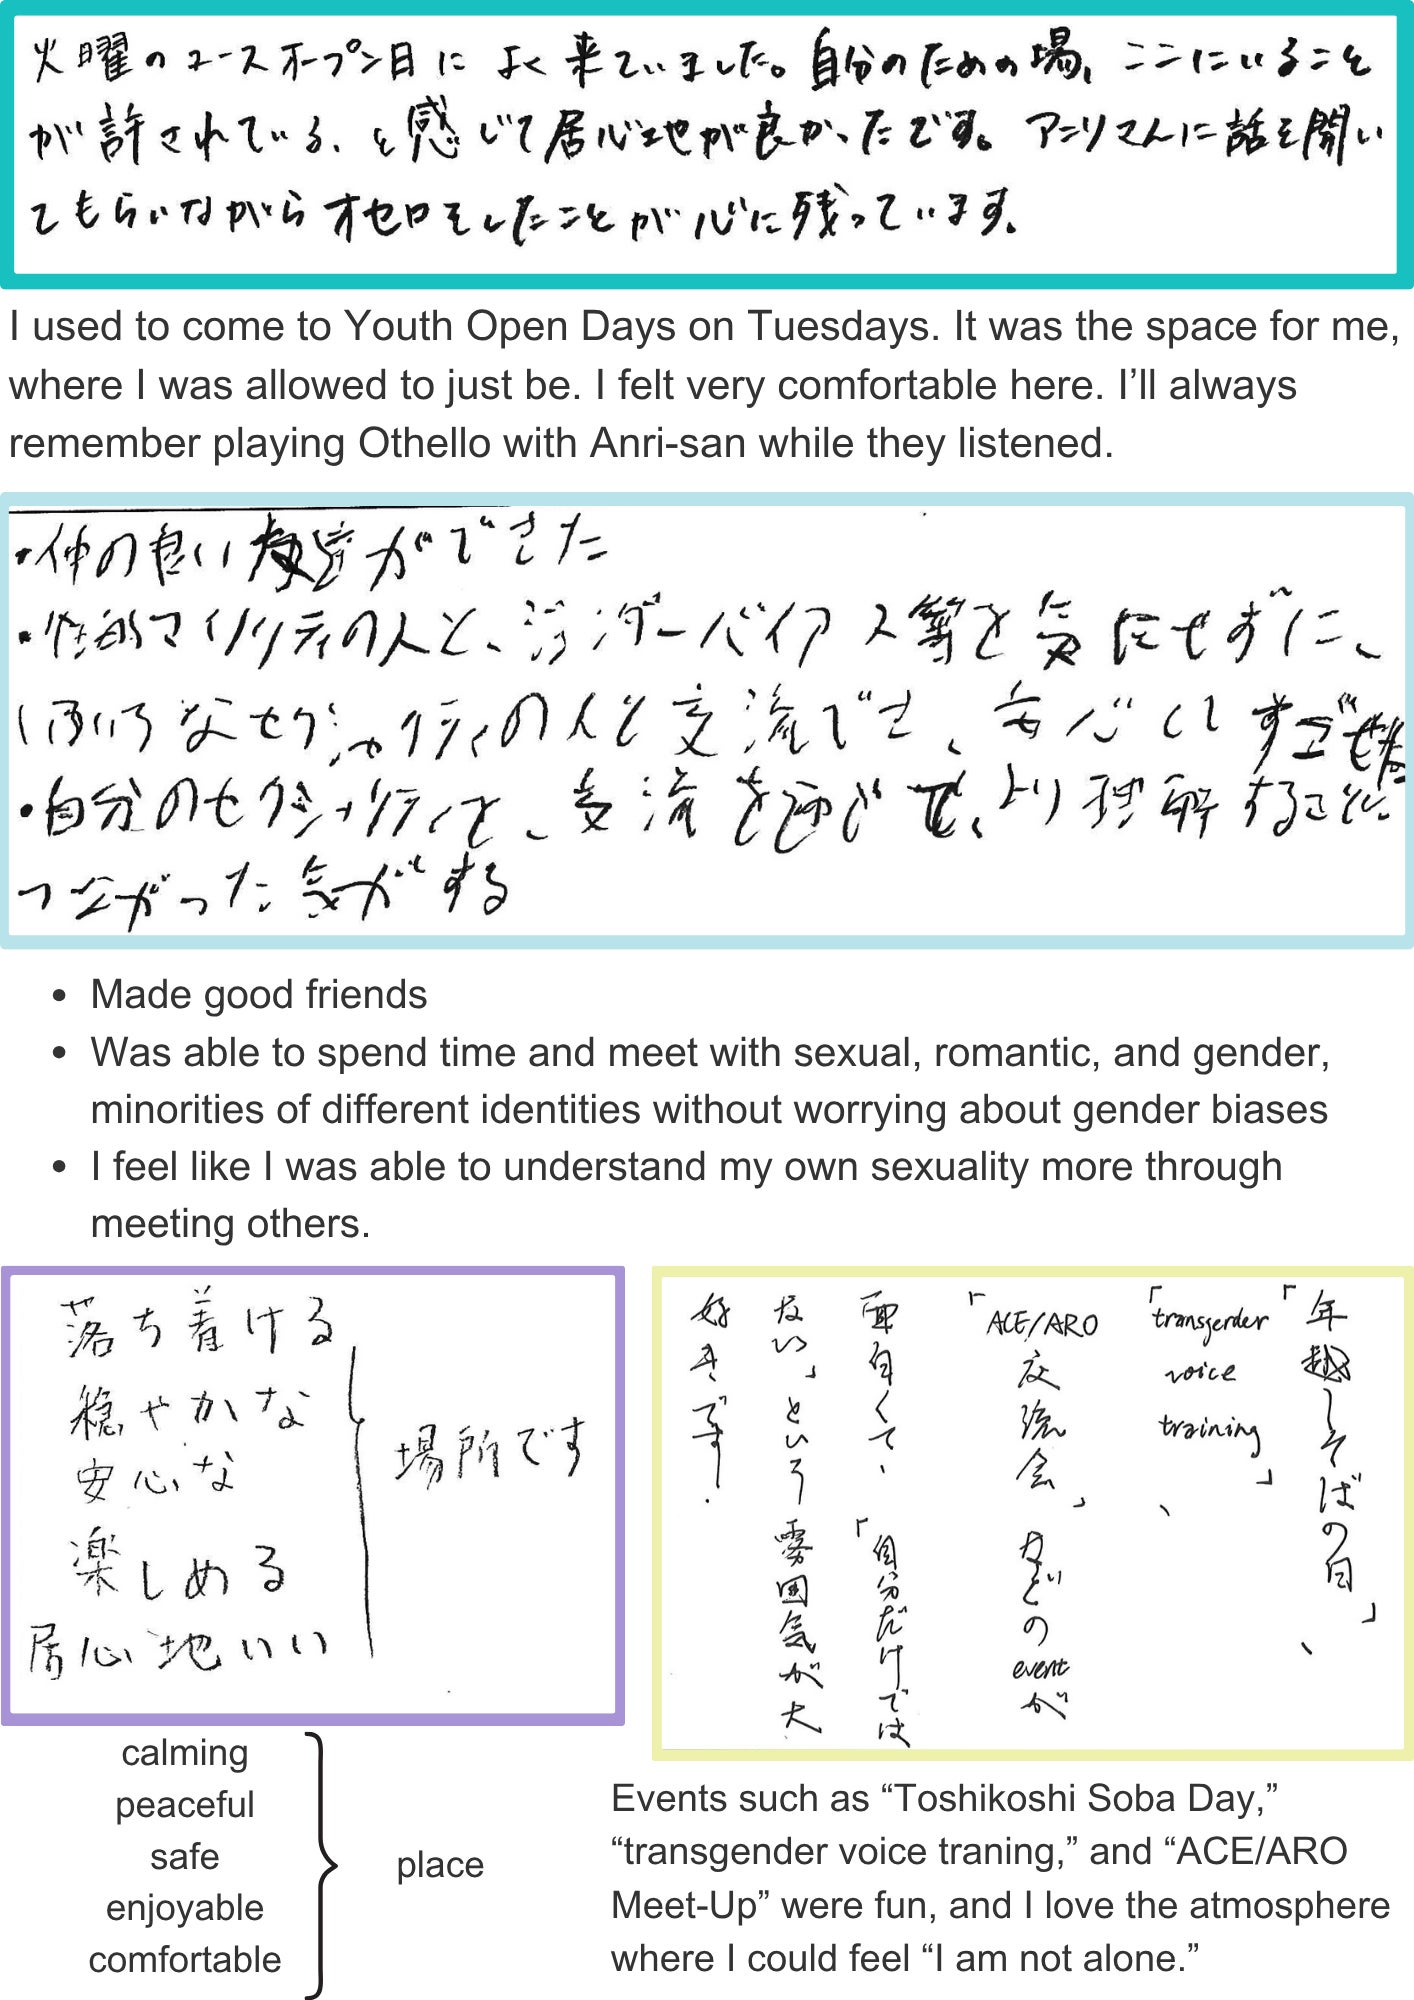 火曜のユースオープン日に よく来ていました。自分のための場、ここにいること
が許されている、と感じて居心地が良かったです。アンリさんに話を聞い
てもらいながらオセロをしたことが心に残っています。
I used to come to Youth Open Days on Tuesdays. It was the space for me,
where I was allowed to just be. I felt very comfortable here. I’ll always
remember playing Othello with Anri-san while they listened.
・仲の良い友達ができた
・性的マイノリティの人と、ジェンダーバイアス等を気にせずに、
いろいろなセクシャリティの人と交流でき、安心してすごせた
・自分のセクシャリティを、交流を通じて、より理解することに
つながった気がする
• Made good friends
• Was able to spend time and meet with sexual, romantic, and gender,
minorities of different identities without worrying about gender biases
• I feel like I was able to understand my own sexuality more through
meeting others.
落ち着ける
穏やかな
安心な
楽しめる
居心地いい
場所です
calming
peaceful
safe
enjoyable
comfortable
place
「年越しそばの日」、
「transgender voice training」、
「ACE/ARO交流会」などのeventが
面白くて、「自分だけでは
ない」という雰囲気が大
好きです!
Events such as “Toshikoshi Soba Day,”
“transgender voice traning,” and “ACE/ARO
Meet-Up” were fun, and I love the atmosphere
where I could feel “I am not alone.”